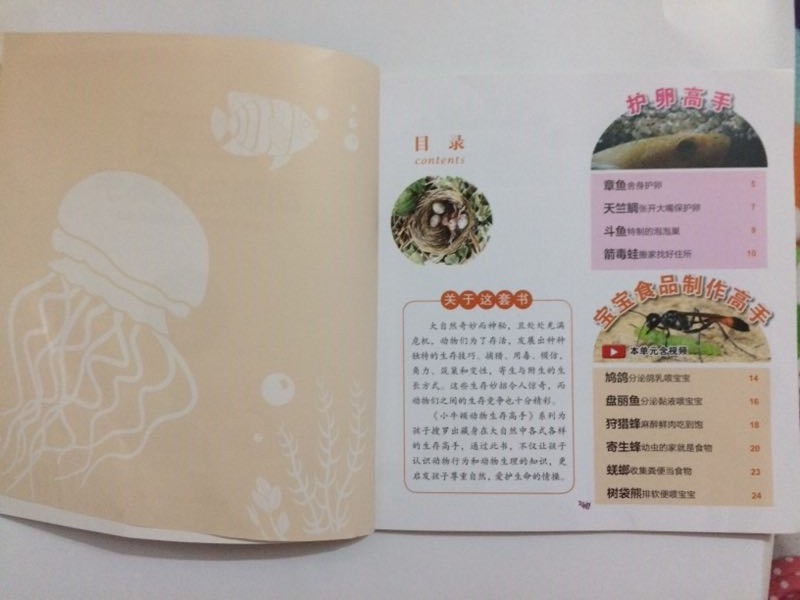 目 录
contents
关于这套书
大自然奇妙而神秘，且处处充满
危机，动物们为了存活，发展出种种
独特的生存技巧。捕猎、用毒、模仿、
角力、筑巢和变性，寄生与附生的生
长方式。这些生存妙招令人惊奇，而
动物们之间的生存竞争也十分精彩。
《小牛顿动物生存高手》系列为
孩子搜罗出藏身在大自然中各式各样
的生存高手，通过此书，不仅让孩子
认识动物行为和动物生理的知识，更
启发孩子尊重自然，爱护生命的情操。
护卵高手
章鱼舍身护卵 5
天竺鲷张开大嘴保护卵 7
斗鱼特制的泡泡巢 9
箭毒蛙搬家找好住所 10
宝宝食品制作高手
本单元含视频
鸠鸽分泌鸽乳喂宝宝 14
盘丽鱼分泌黏液喂宝宝 16
狩猎蜂麻醉鲜肉吃到饱 18
寄生蜂幼虫的家就是食物 20
蜣螂收集粪便当食物 23
树袋熊排软便喂宝宝 24